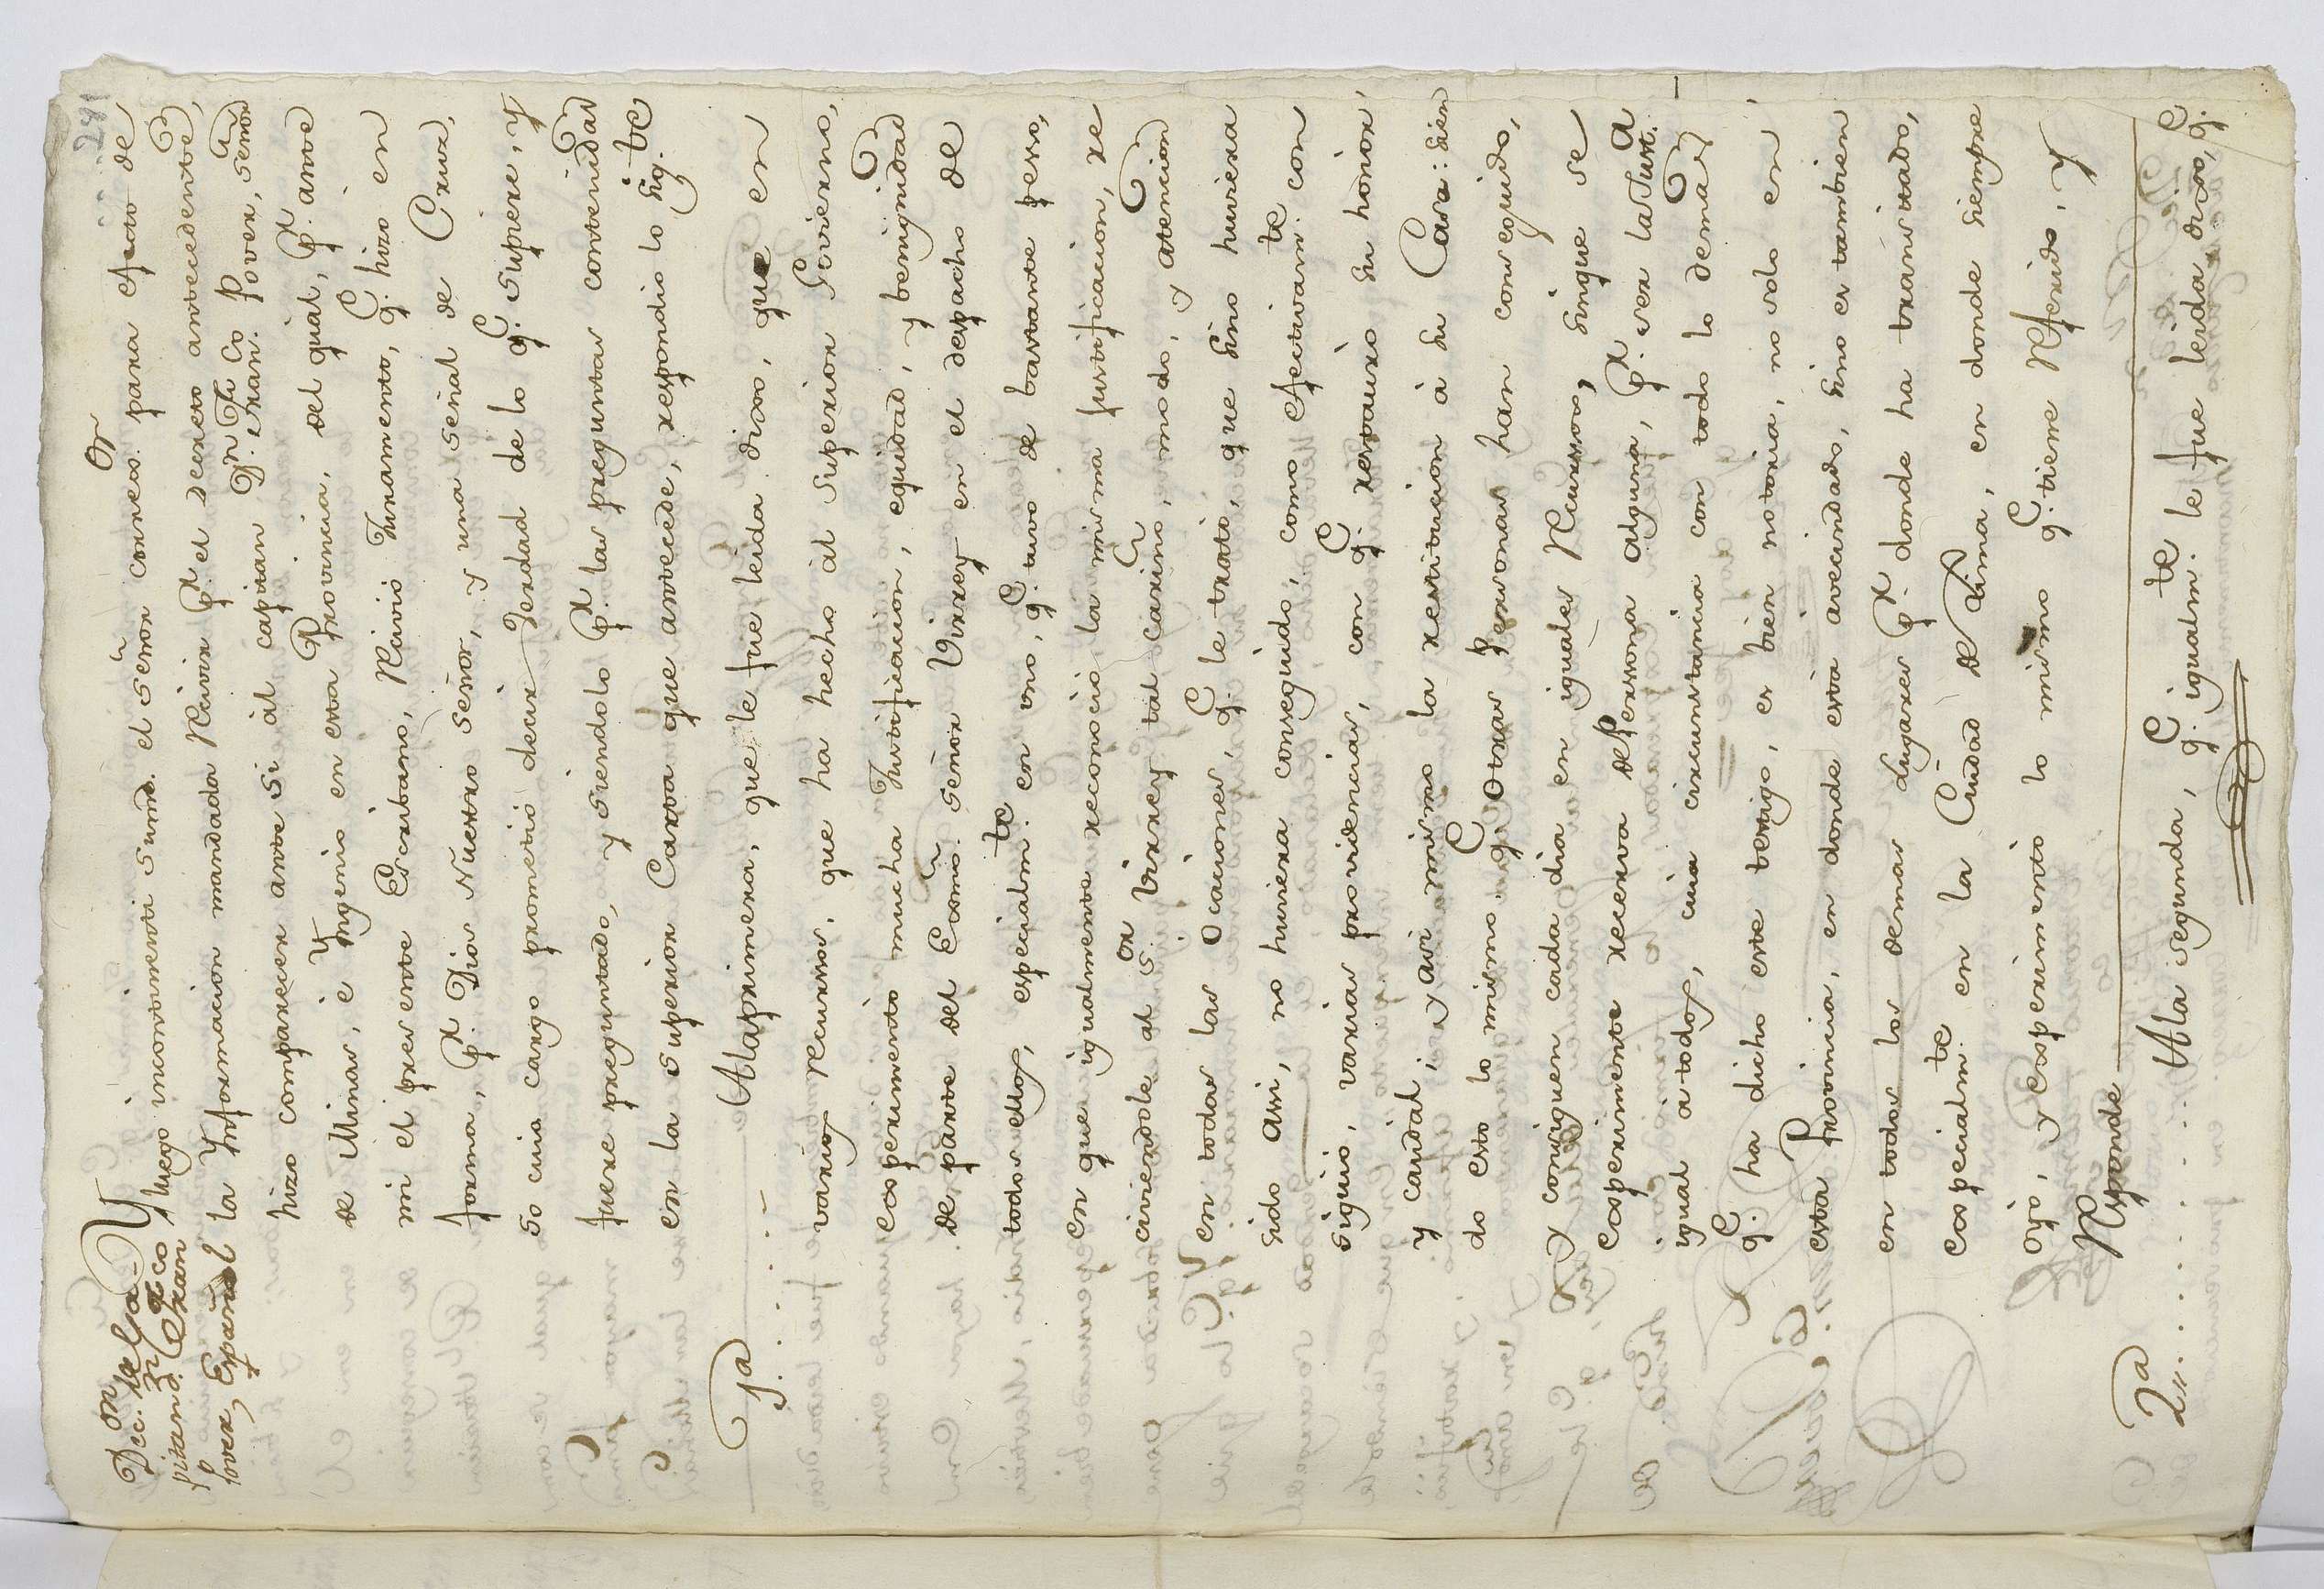 241
Dec.on del Ca-
pitan d. Fr.co Xran
Pover, Español
Y luego incontinenti sumd. el señor correg.or para efecto de
la Ynformacion mandada Recivir p.r el decreto antecedente,
hizo comparecer ante si ál capitan D.n Fr.co Xran. Pover, señor
de Minas, é Yngenio en esta Provincia, del qual, p.r ante
mi el presente Escribano, Recivió Juramento, q.e hizo en
forma, p.r Dios Nuestro Señor, y una señal de Cruz,
so cuio cargo prometió decir Verdad de lo q.e supiere, y
fuere preguntado, y siendolo p.r las preguntas contenidas
en la superior Carta que antecede, respondio lo sig.te
1a......
Alaprimera, que le fue leida dixo, que en
varios Recursos, que ha hecho ál Superior Govierno,
experimentó mucha Justificacion, equidad, y benignidad
de parte del Exmo. señor Virrey en el despacho de
todos ellos, especialm.te en uno, q.e tuvo de bastante peso,
en que igualmente reconoció la misma justificacion, re
civiendole ál S.or Virrey tal cariño, modo, y atencion
en todas las Ocaciones, q.e le trató, que sino huviera
sido Assi, no huviera conseguido, como efectivam.te con
siguió, varias providencias, con q.e restauró su honor,
y caudal, y asi mismo la restitucion á su Casa: sien
do esto lo mismo q.e Otras Personas han conseguido,
y consiguen cada dia en iguales Recursos, sinque se
experimente reserva de Persona alguna, p.r ser la Just.a
igual á todos, cuia circunstancia con todo lo demas
q.e ha dicho este testigo, es bien notoria, no solo en
esta Provincia, en donde está avecindado, sino es tambien
en todos los demas Lugares p.r donde ha transitado,
especialm.te en la Ciudad de Lima, en donde siempre
oyó, y experimentó lo mismo q.e tiene Referido, y
Responde
2a......
Ala segunda, q.e igualm.te le fue leida dixo, q.e